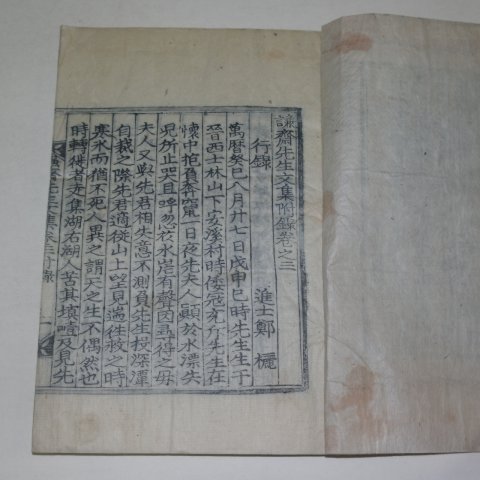 謙齋先生文集附錄卷之三
行錄 進士鄭欐
萬曆癸巳八月廿七日戊申巳時先生生于
晉西士林山下安溪村時倭寇充斥先生在
懷中抱負奔竄一日夜先夫人顚於水漂失
児所止哭且呼忽於水崖有聲因尋得之毋
夫人又與先君相失意不測負先生投深潭
自裁之際先君適從山上望見遄徃救之時
寒水而猶不死人異之謂天之生不偶然也
時轉徙者交集湖右湖人苦其填噎及見先